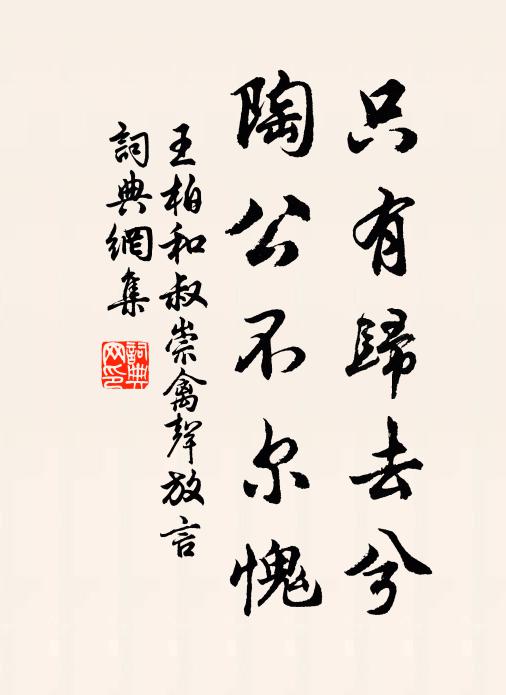 只有歸去兮
陶公不尔愧
王柏和叔崇禽聲放言
詞典網集
詞典
网印